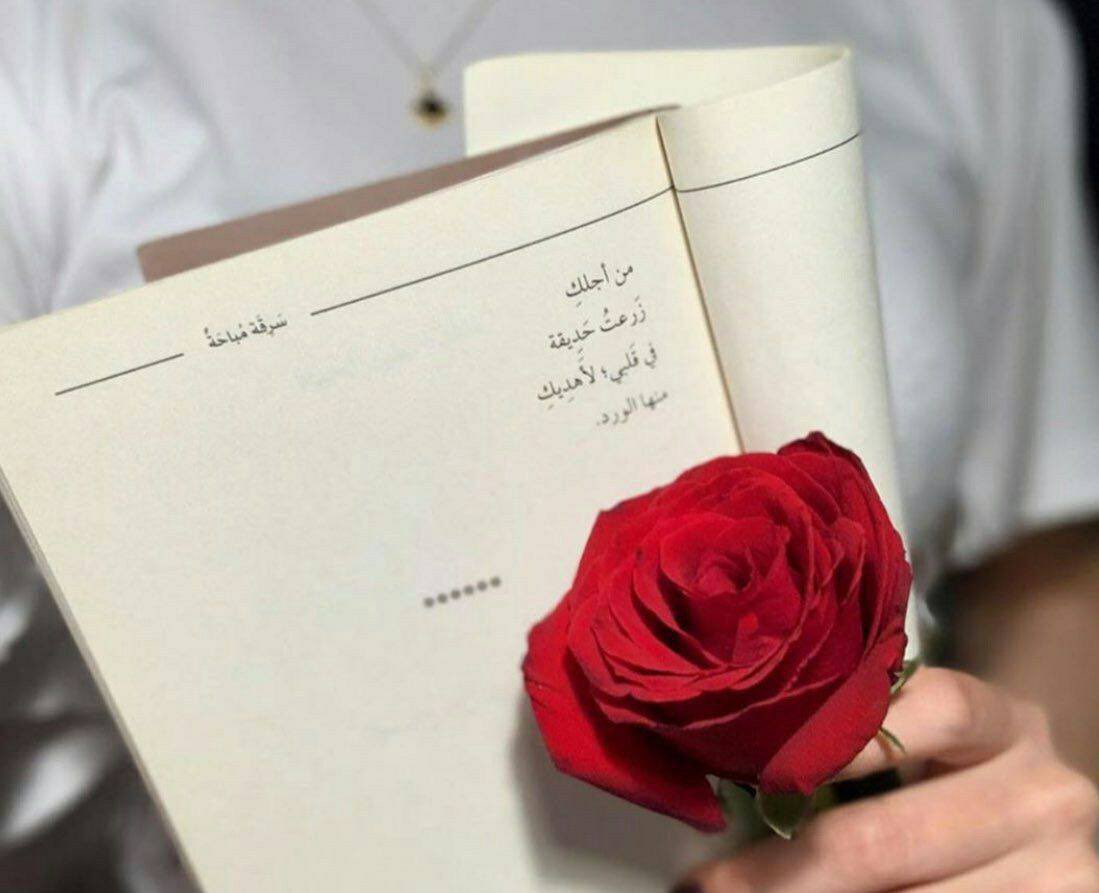 سَرِقَة مُباحَةْ
من أجلكِ
زَرعتُ حَدِيقة
في قَلبي؛ لأُهدِيكِ
منها الورد.